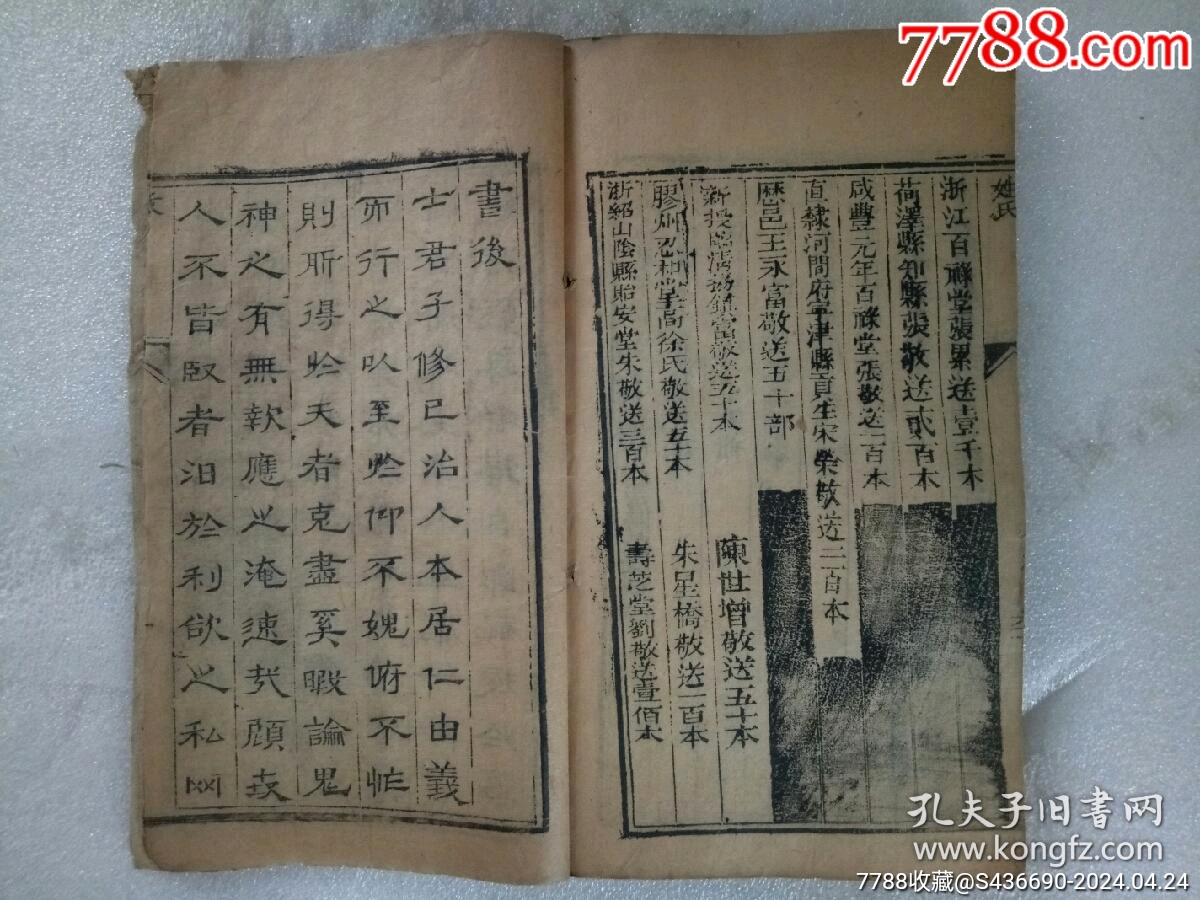 7788.com
姓氏
浙江百祿堂張累送壹千本
荷澤縣知縣張敬送貳百本
咸豐元年百祿堂張敬送一百本
直隸河間府寧津縣貢生宋榮敬送二百本
歷邑王永富敬送五十部
陳世增敬送五十本
膠州忍和堂高徐氏敬送五十本
朱星橋敬送一百本
浙紹山陰縣貽安堂朱敬送三百本
壽芝堂劉敬送壹佰本
書後
士君子修已治人本居仁由義
而行之以至於仰不媿俯不怍
則所得於天者克盡奚暇論鬼
神之有無報應之淹速哉顧世
人不皆賢者汨於利欲之私罔
孔夫子旧书网
www.kongfz.com
7788收藏@S436690-2024.04.24